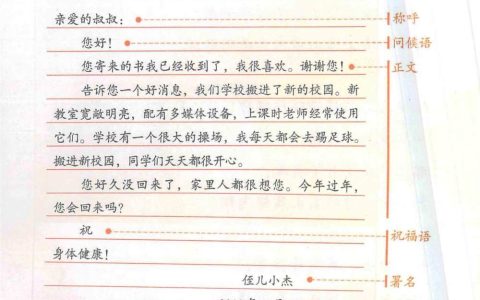 亲爱的叔叔：
称呼
您好！
问候语
您寄来的书我已经收到了，我很喜欢。谢谢您！
正文
告诉您一个好消息，我们学校搬进了新的校园。新
教室宽敞明亮，配有多媒体设备，上课时老师经常使用
它们。学校有一个很大的操场，我每天都会去踢足球。
搬进新校园，同学们天天都很开心。
您好久没回来了，家里人都很想您。今年过年，
您会回来吗？
祝
祝福语
身体健康！
侄儿小杰
署名